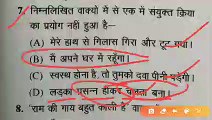 7. निम्नलिखित वाक्यों में से एक में संयुक्त क्रिया
का प्रयोग नहीं हुआ है—
(A) मेरे हाथ से गिलास गिरा और टूट गया।
(B) मैं अपने घर में रहूँगा।
(C) स्वस्थ होना है, तो तुमको दवा पीनी पड़ेगी।
(D) लड़का प्रसन्न होकर चलता बना।
8. 'राम की गाय बहुत काली है'